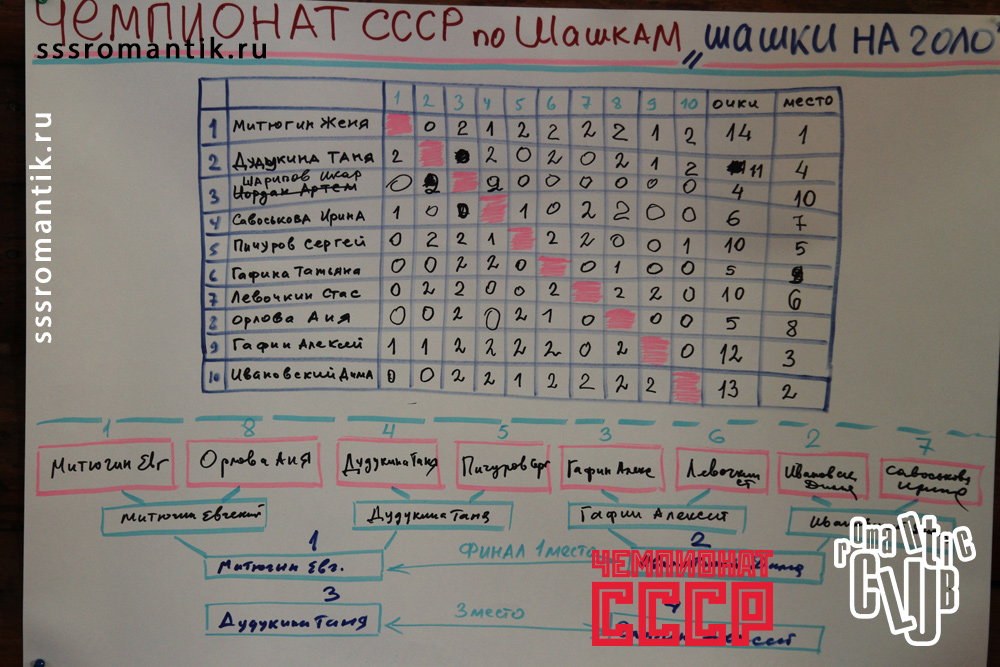 ЧЕМПИОНАТ СССР по Шашкам „шашки на голо
sssromantik.ru
sssromantik.ru
1 2 3 4 5 6 7 8 9 10 очки место
1 Митюгин Женя 0 2 1 2 2 2 2 1 2 14 1
2 Дудукина Таня 2 2 0 2 0 2 1 2 11 4
Шарипов Икар
3 Йордан Артем 0 2 2 0 0 0 0 0 0 4 10
4 Савоськова Ирина 1 0 0 1 0 2 2 0 0 6 7
5 Пичуров Сергей 0 2 2 1 2 2 0 0 1 10 5
6 Гафина Татьяна 0 0 2 2 0 0 1 0 0 5
7 Левочкин Стас 0 2 2 0 0 2 2 2 0 10 6
8 Орлова Аня 0 0 2 0 2 1 0 0 0 5 8
9 Гафин Алексей 1 1 2 2 2 2 0 2 0 12 3
10 Ивановский Дима 0 0 2 2 1 2 2 2 2 13 2
1 8 4 5 3 6 2 7
Митюгин Евг Орлова Аня Дудукина Таня Пичуров Серг Гафин Алекс Левочкин Ст Ивановск Дима Савоськова Ирина
Митюгин Евгений Дудукина Таня Гафин Алексей
1 Финал 1 место 2
Митюгин Евг.
3 3 место
Дудукина Таня
ЧЕМПИОНАТ
СССР
romantic
CLUB